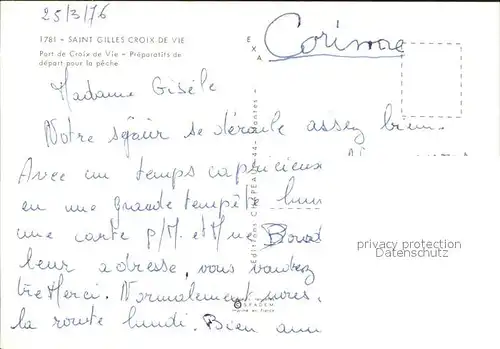 25/3/76
1781 - SAINT GILLES CROIX DE VIE
Port de Croix de Vie - Préparatifs de
départ pour la pêche
EXA
Corinne
Madame Gisèle
Notre séjour se déroule assez bien.
Avec un temps capricieux
en une grande tempête
une carte p/M. et Mme
leur adresse, vous voudrez
Merci. Normalement
la route lundi. Bien
Editions CHAPEAU - 44 - Nantes
SPADEM
Imprimé en France
privacy protection
Datenschutz